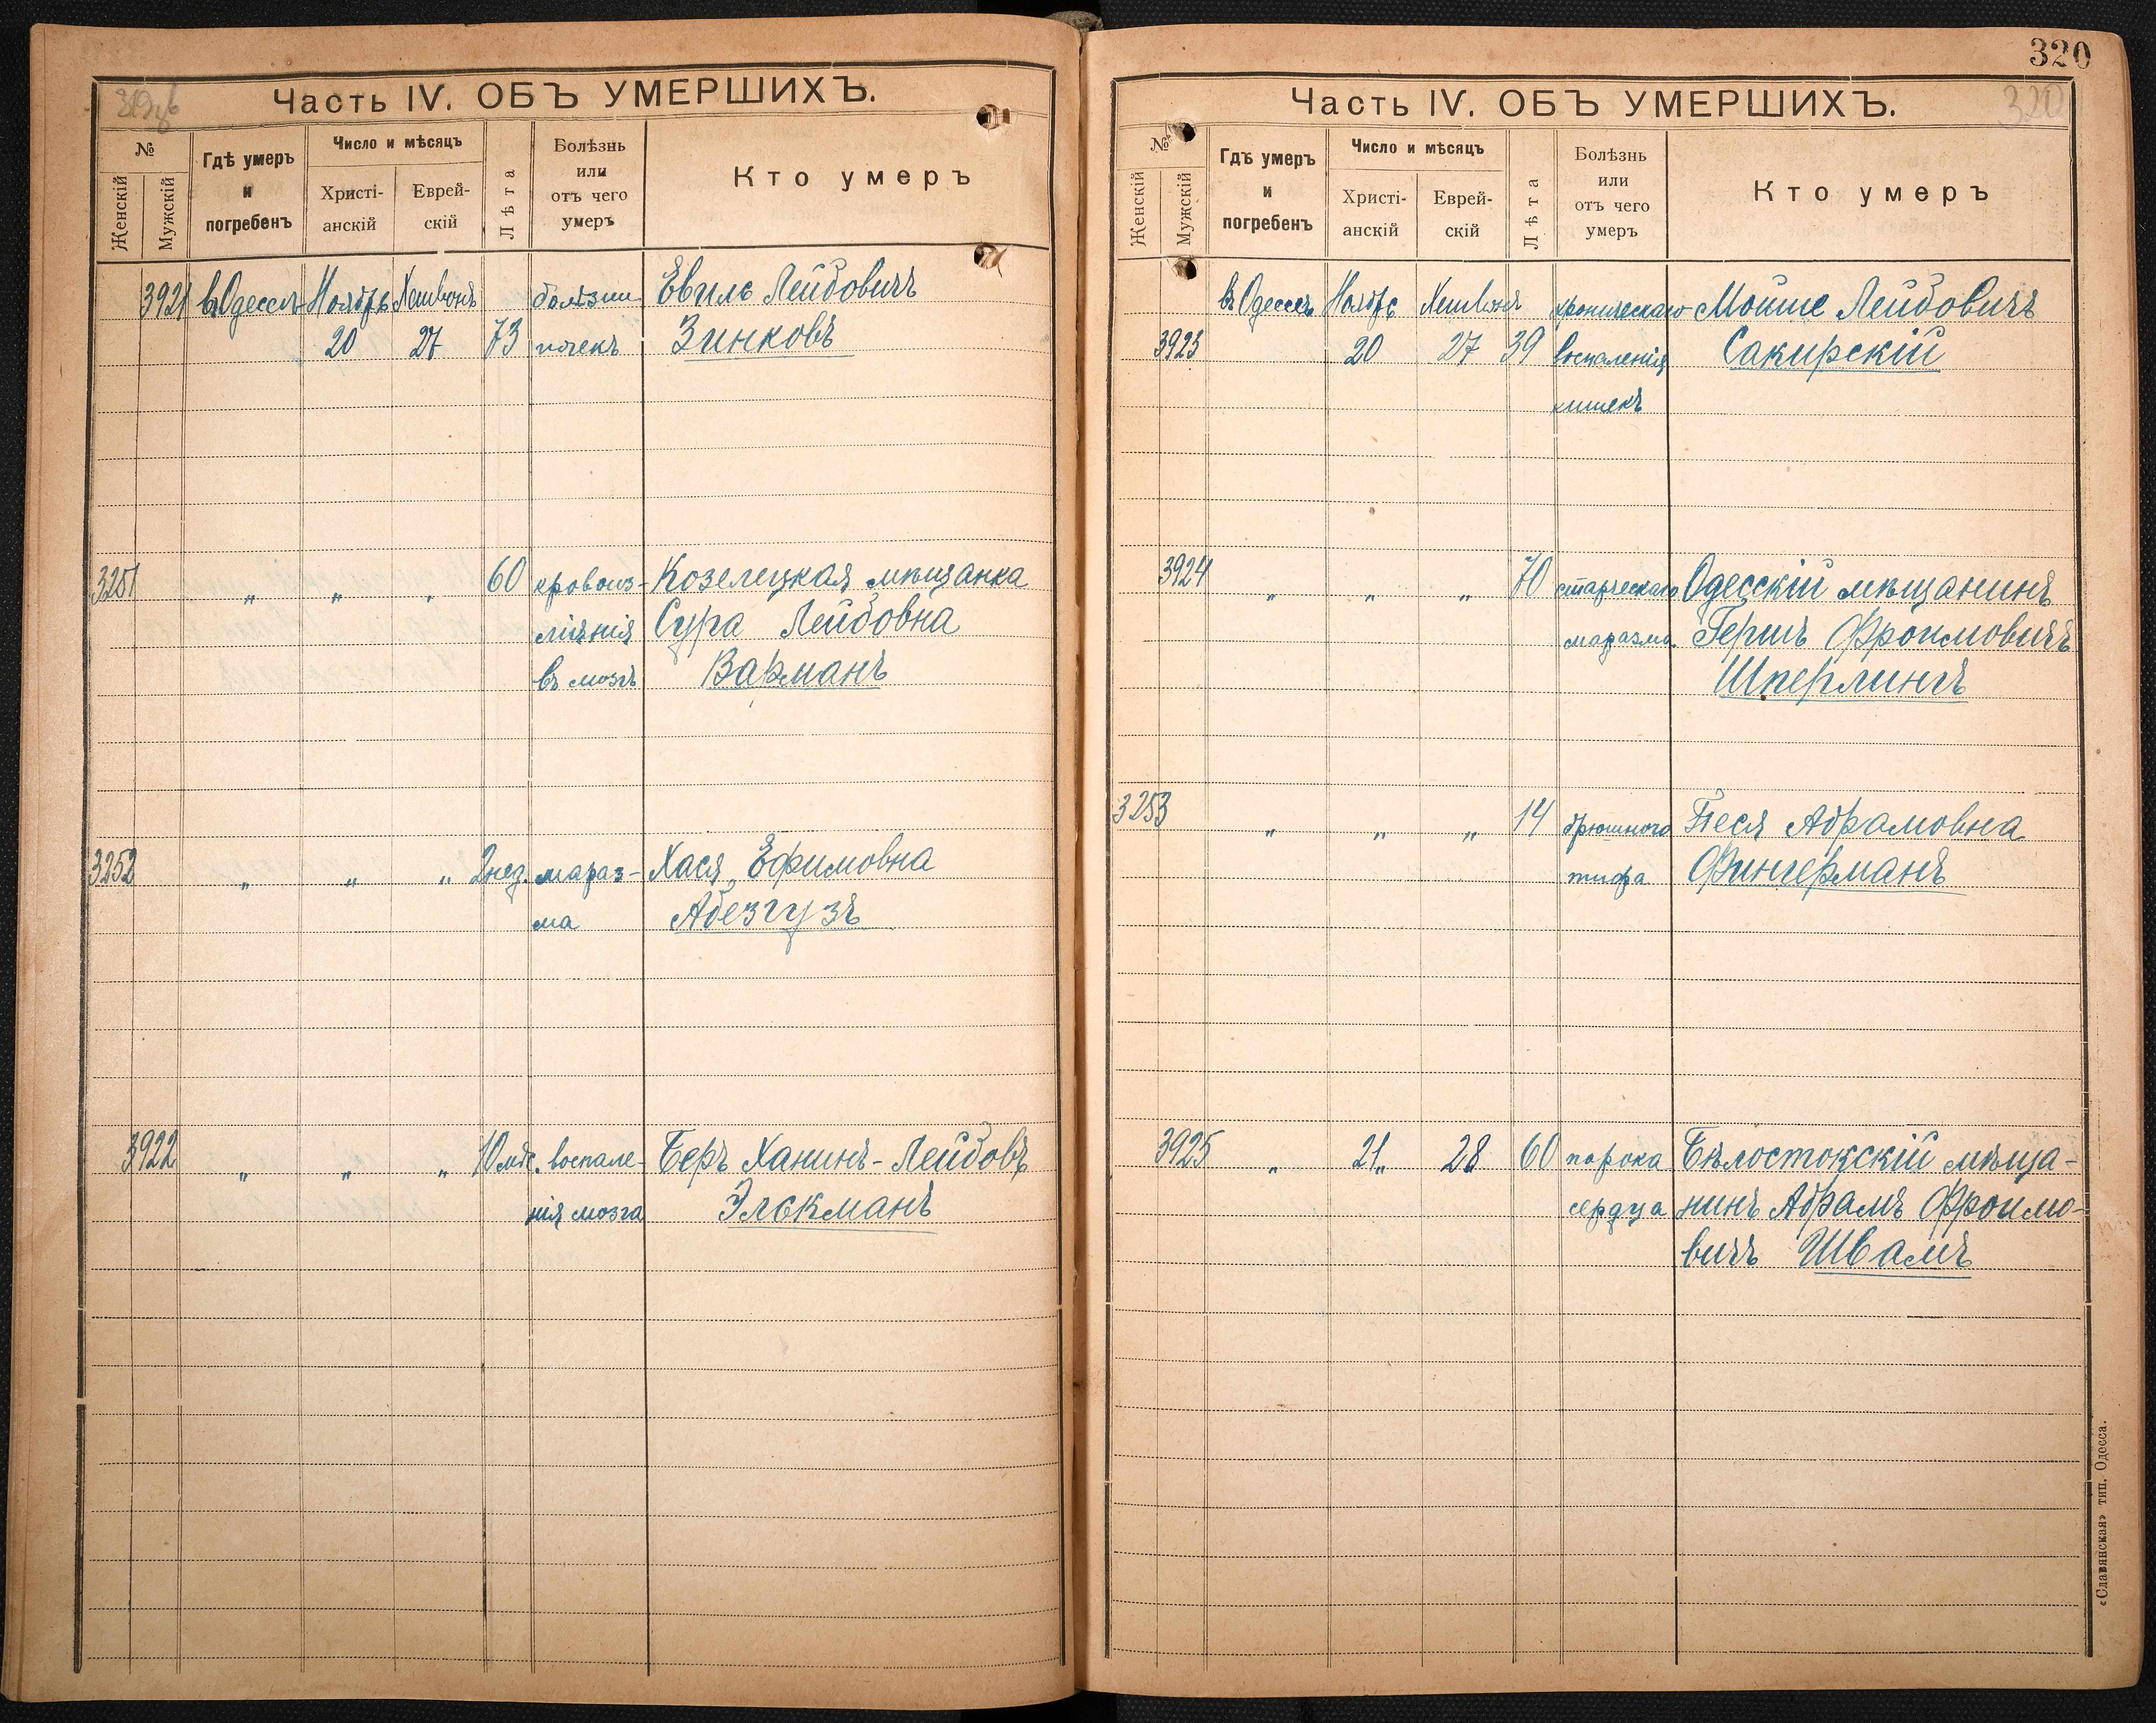 319об
Часть IV. ОБЪ УМЕРШИХЪ.
№
Женскій
Мужскій
Гдѣ умеръ и погребенъ
Число и мѣсяцъ
Христіанскій
Еврейскій
Лѣта
Болѣзнь или отъ чего умеръ
Кто умеръ
3921 въ Одессѣ Ноябрь Хешвонъ болѣзни Евиль Лейбовичъ
20 27 73 почекъ Зинковъ
3251 " " " 60 кровоиз- Козелецкая мѣщанка
ліянія Сура Лейбовна
въ мозгъ Варманъ
3252 " " " 2 нед. мараз- Хася Ефимовна
ма Абезгузъ
3922 " " " 10 мѣс. воспале- Беръ Ханинъ-Лейбовъ
нія мозга Элькманъ
320
320
Часть IV. ОБЪ УМЕРШИХЪ.
№
Женскій
Мужскій
Гдѣ умеръ и погребенъ
Число и мѣсяцъ
Христіанскій
Еврейскій
Лѣта
Болѣзнь или отъ чего умеръ
Кто умеръ
въ Одессѣ Ноябрь Хешвонъ хроническаго Мойше Лейбовичъ
3923 20 27 39 воспаленія Сакирскій
кишекъ
3924 " " " 70 старческаго Одесскій мѣщанинъ
маразма Гершъ Фроимовичъ
Шперлингъ
3253 " " " 14 брюшного Песя Абрамовна
тифа Фингерманъ
3925 " 21 " 28 60 порока Бѣлостокскій мѣща-
сердца нинъ Абрамъ Фроимо-
вичъ Швамъ
«Славянская» тип. Одесса.